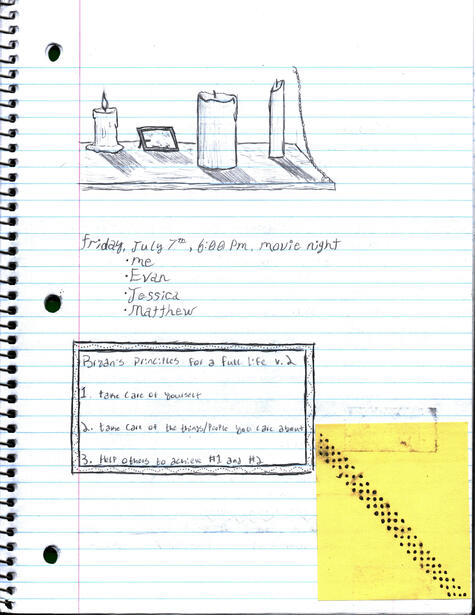 Friday, July 7th, 6:00 Pm, movie night
• me
• Evan
• Jessica
• Matthew
Bryan's Principles for a full life v.2
1. take care of yourself
2. take care of the things/people you care about
3. Help others to achieve #1 and #2